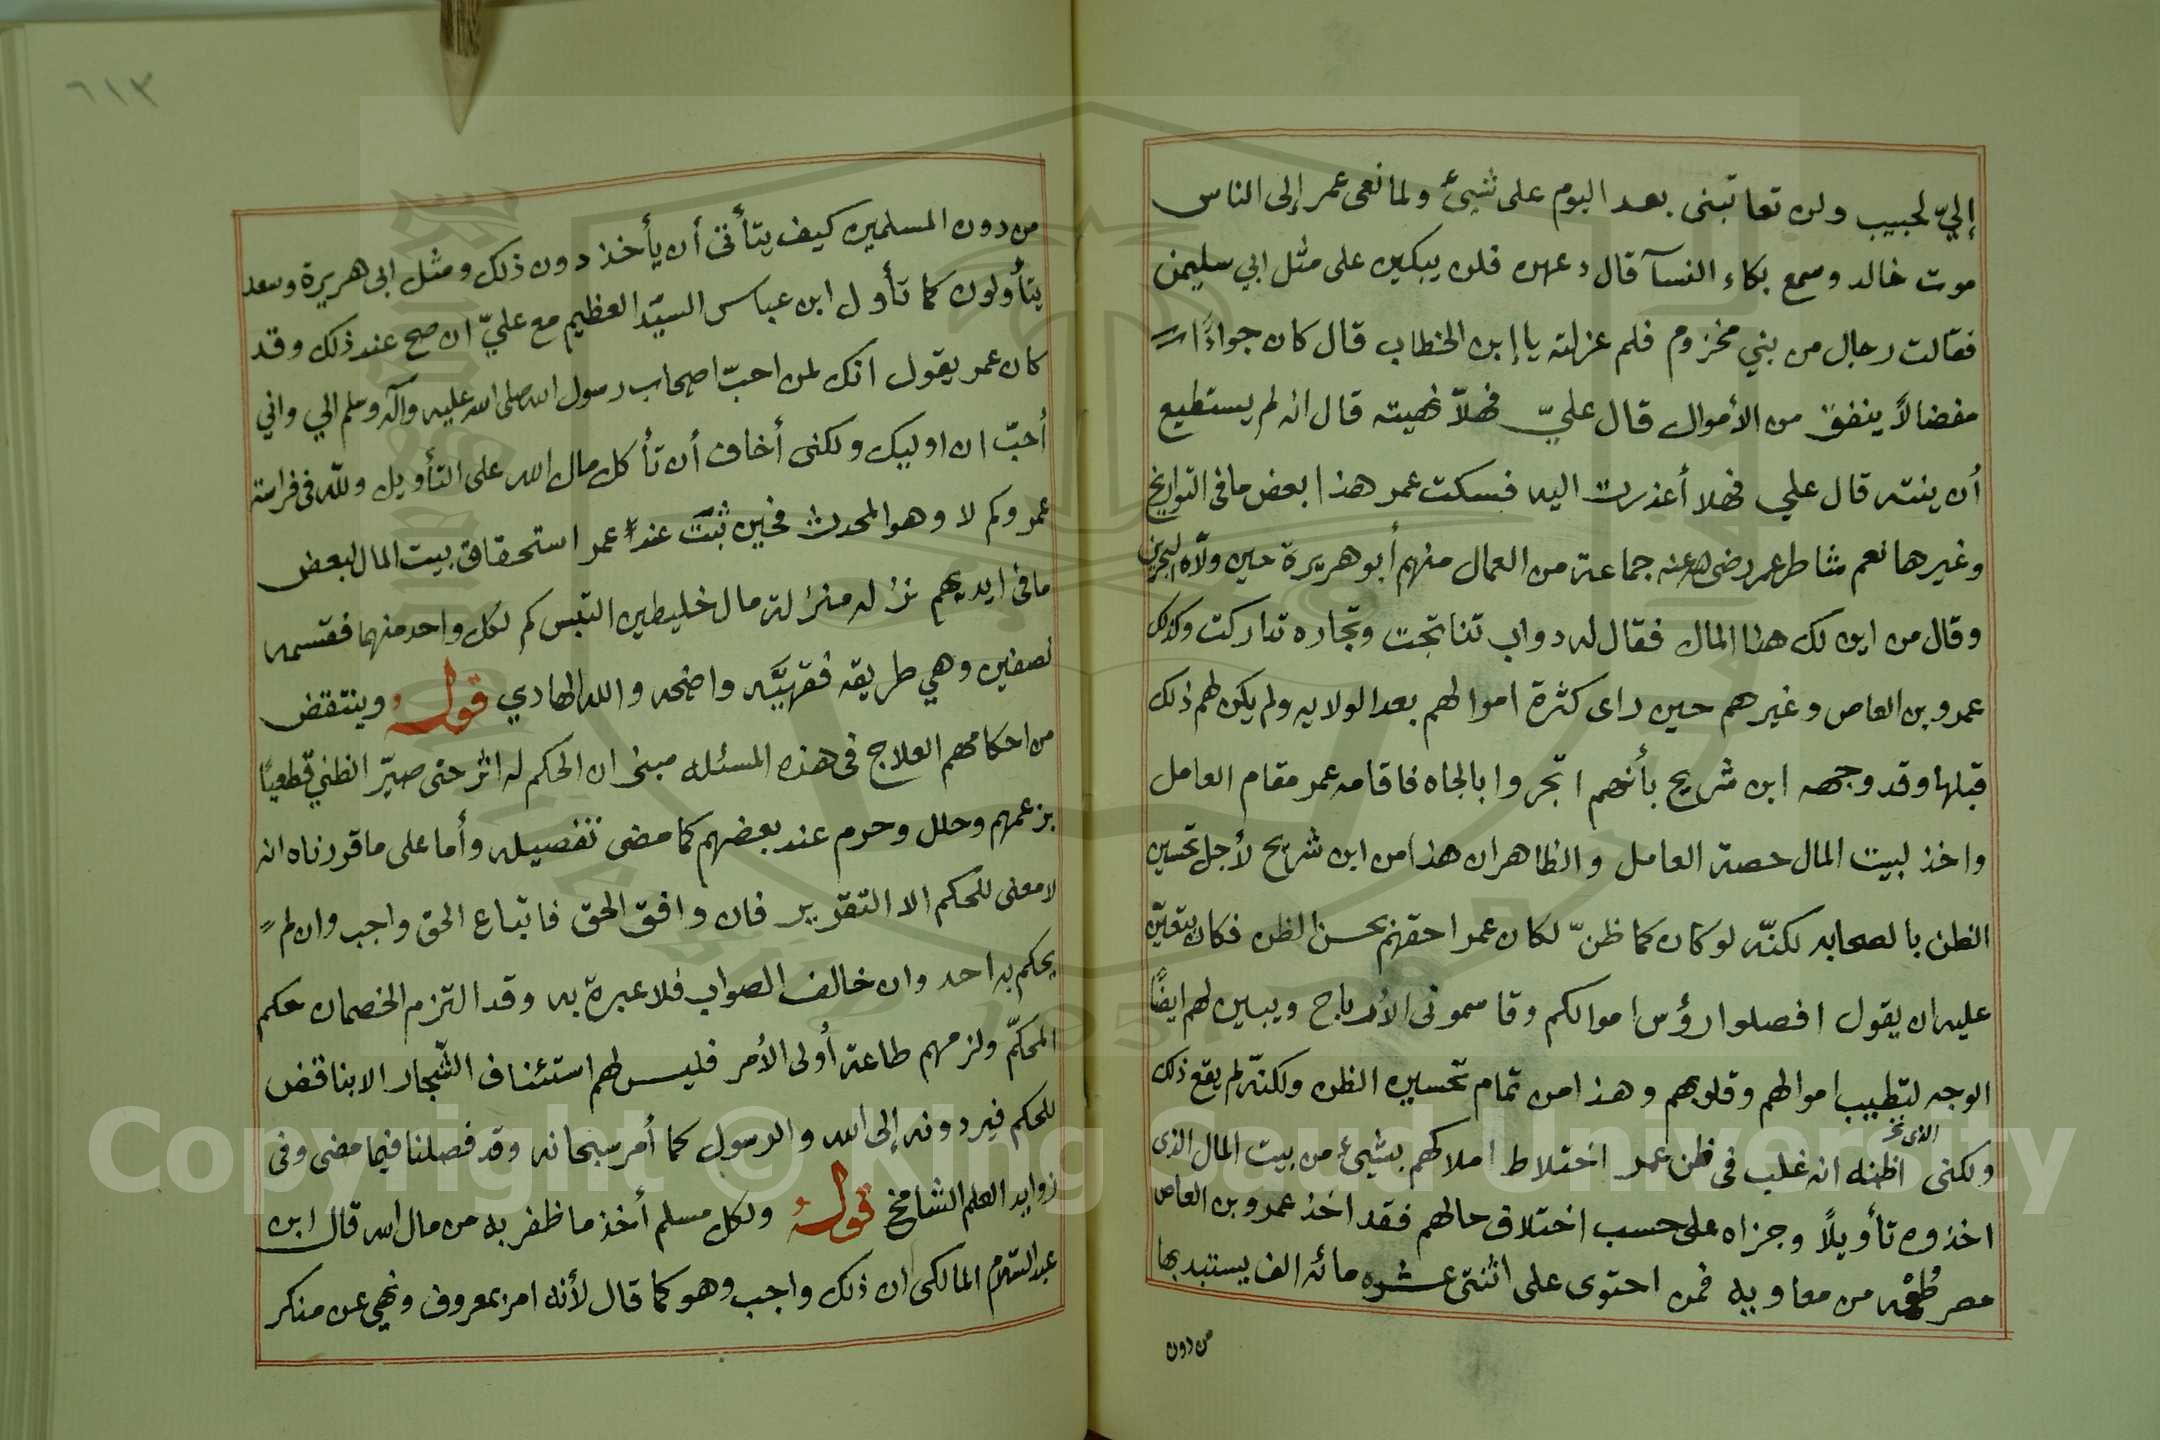 إليّ لحبيب ولن تعاتبنى بعد اليوم على شيئ ولما نعى عمر إلى الناس
موت خالد وسمع بكاء النسآ قال دعهن فلن يبكين على مثل ابي سليمن
فقالت رجال من بني مخزوم فلم عزلته يا إبن الخطاب قال كان جوادًا
مفضالاً ينفق من الأموال قال عليّ فهلاّ نهيته قال انه لم يستطيع
أن ينته قال علي فهلا أعذرت اليه فسكت عمر هذا بعض ما فى التواريخ
وغيرها نعم شاطر عمر رضى الله عنه جماعة من العمال منهم أبو هريرة حين ولاّه البحرين
وقال من اين لك هذا المال فقال له دواب تناتجت وتجاره تداركت وكذلك
عمرو بن العاص وغيرهم حين راى كثرة اموالهم بعد الولايه ولم يكن لهم ذلك
قبلها وقد وجهه ابن شريح بأنهم اتجروا بالجاه فاقامه عمر مقام العامل
واخذ لبيت المال حصة العامل والظاهر ان هذا من ابن شريح لأجل تحسين
الظن بالصحابه لكنّه لو كان كما ظنّ لكان عمر احقهم بحسن الظن فكان يتعيّن
عليه ان يقول افصلوا رؤس اموالكم وقاسمونى الأرباح ويبين لهم ايضًا
الوجه لتطييب اموالهم وقلوبهم وهذا من تمام تحسين الظن ولكنّه لم يقع ذلك
ولكنى اظنه انه غلب فى ظن عمر اختلاط املاكهم بشيئ من بيت المال الذى
الذى نخ
اخذوه تأويلاً وجزاه على حسب اختلاف حالهم فقد اخذ عمرو بن العاص
مصر طُعْمه من معاويه فمن احتوى على اثنتى عشره مائه الف يستبد بها
من دون
٦١٣
من دون المسلمين كيف يتأتى أن يأخذ دون ذلك ومثل ابى هريرة وسعد
يتأولون كما تأول ابن عباس السيّد العظيم مع عليّ ان صح عند ذلك وقد
كان عمر يقول انك لمن احبّ اصحاب رسول الله صلى الله عليه وآله وسلم الي واني
أحبّ ان اوليك ولكنى أخاف أن تأكل مال الله على التأويل ولله فى فراسته
عمر وكم لا وهو المحدث فحين ثبت عند عمر استحقاق بيت المال لبعض
ما فى ايديهم نزله منزلة مال خليطين التبس كم لكل واحد منهما فقسمه
نصفين وهي طريقه فقهيَّه واضحه والله الهادي قوله وينتقض
من احكامهم العلاج فى هذه المسئله مبنى ان الحكم له اثر حتى صيّر الظني قطعيًا
بزعمهم وحلل وحرم عند بعضهم كما مضى تفصيله وأما على ما قررناه انه
لا معنى للحكم الا التقرير فان وافق الحق فاتباع الحق واجب وان لم
يحكم به احد وان خالف الصواب فلا عبرة به وقد التزم الخصمان حكم
المحكّم ولزمهم طاعة أولى الأمر فليس لهم استئناف الشجار الا بناقض
للحكم فيردونه إلى الله والرسول كما أمر سبحانه وقد فصلنا فيما مضى وفى
زوايد العلم الشامخ قوله ولكل مسلم أخذ ما ظفر به من مال الله قال ابن
عبد السلام المالكى ان ذلك واجب وهو كما قال لأنه امر بمعروف ونهي عن منكر
Copyright © King Saud University
1957